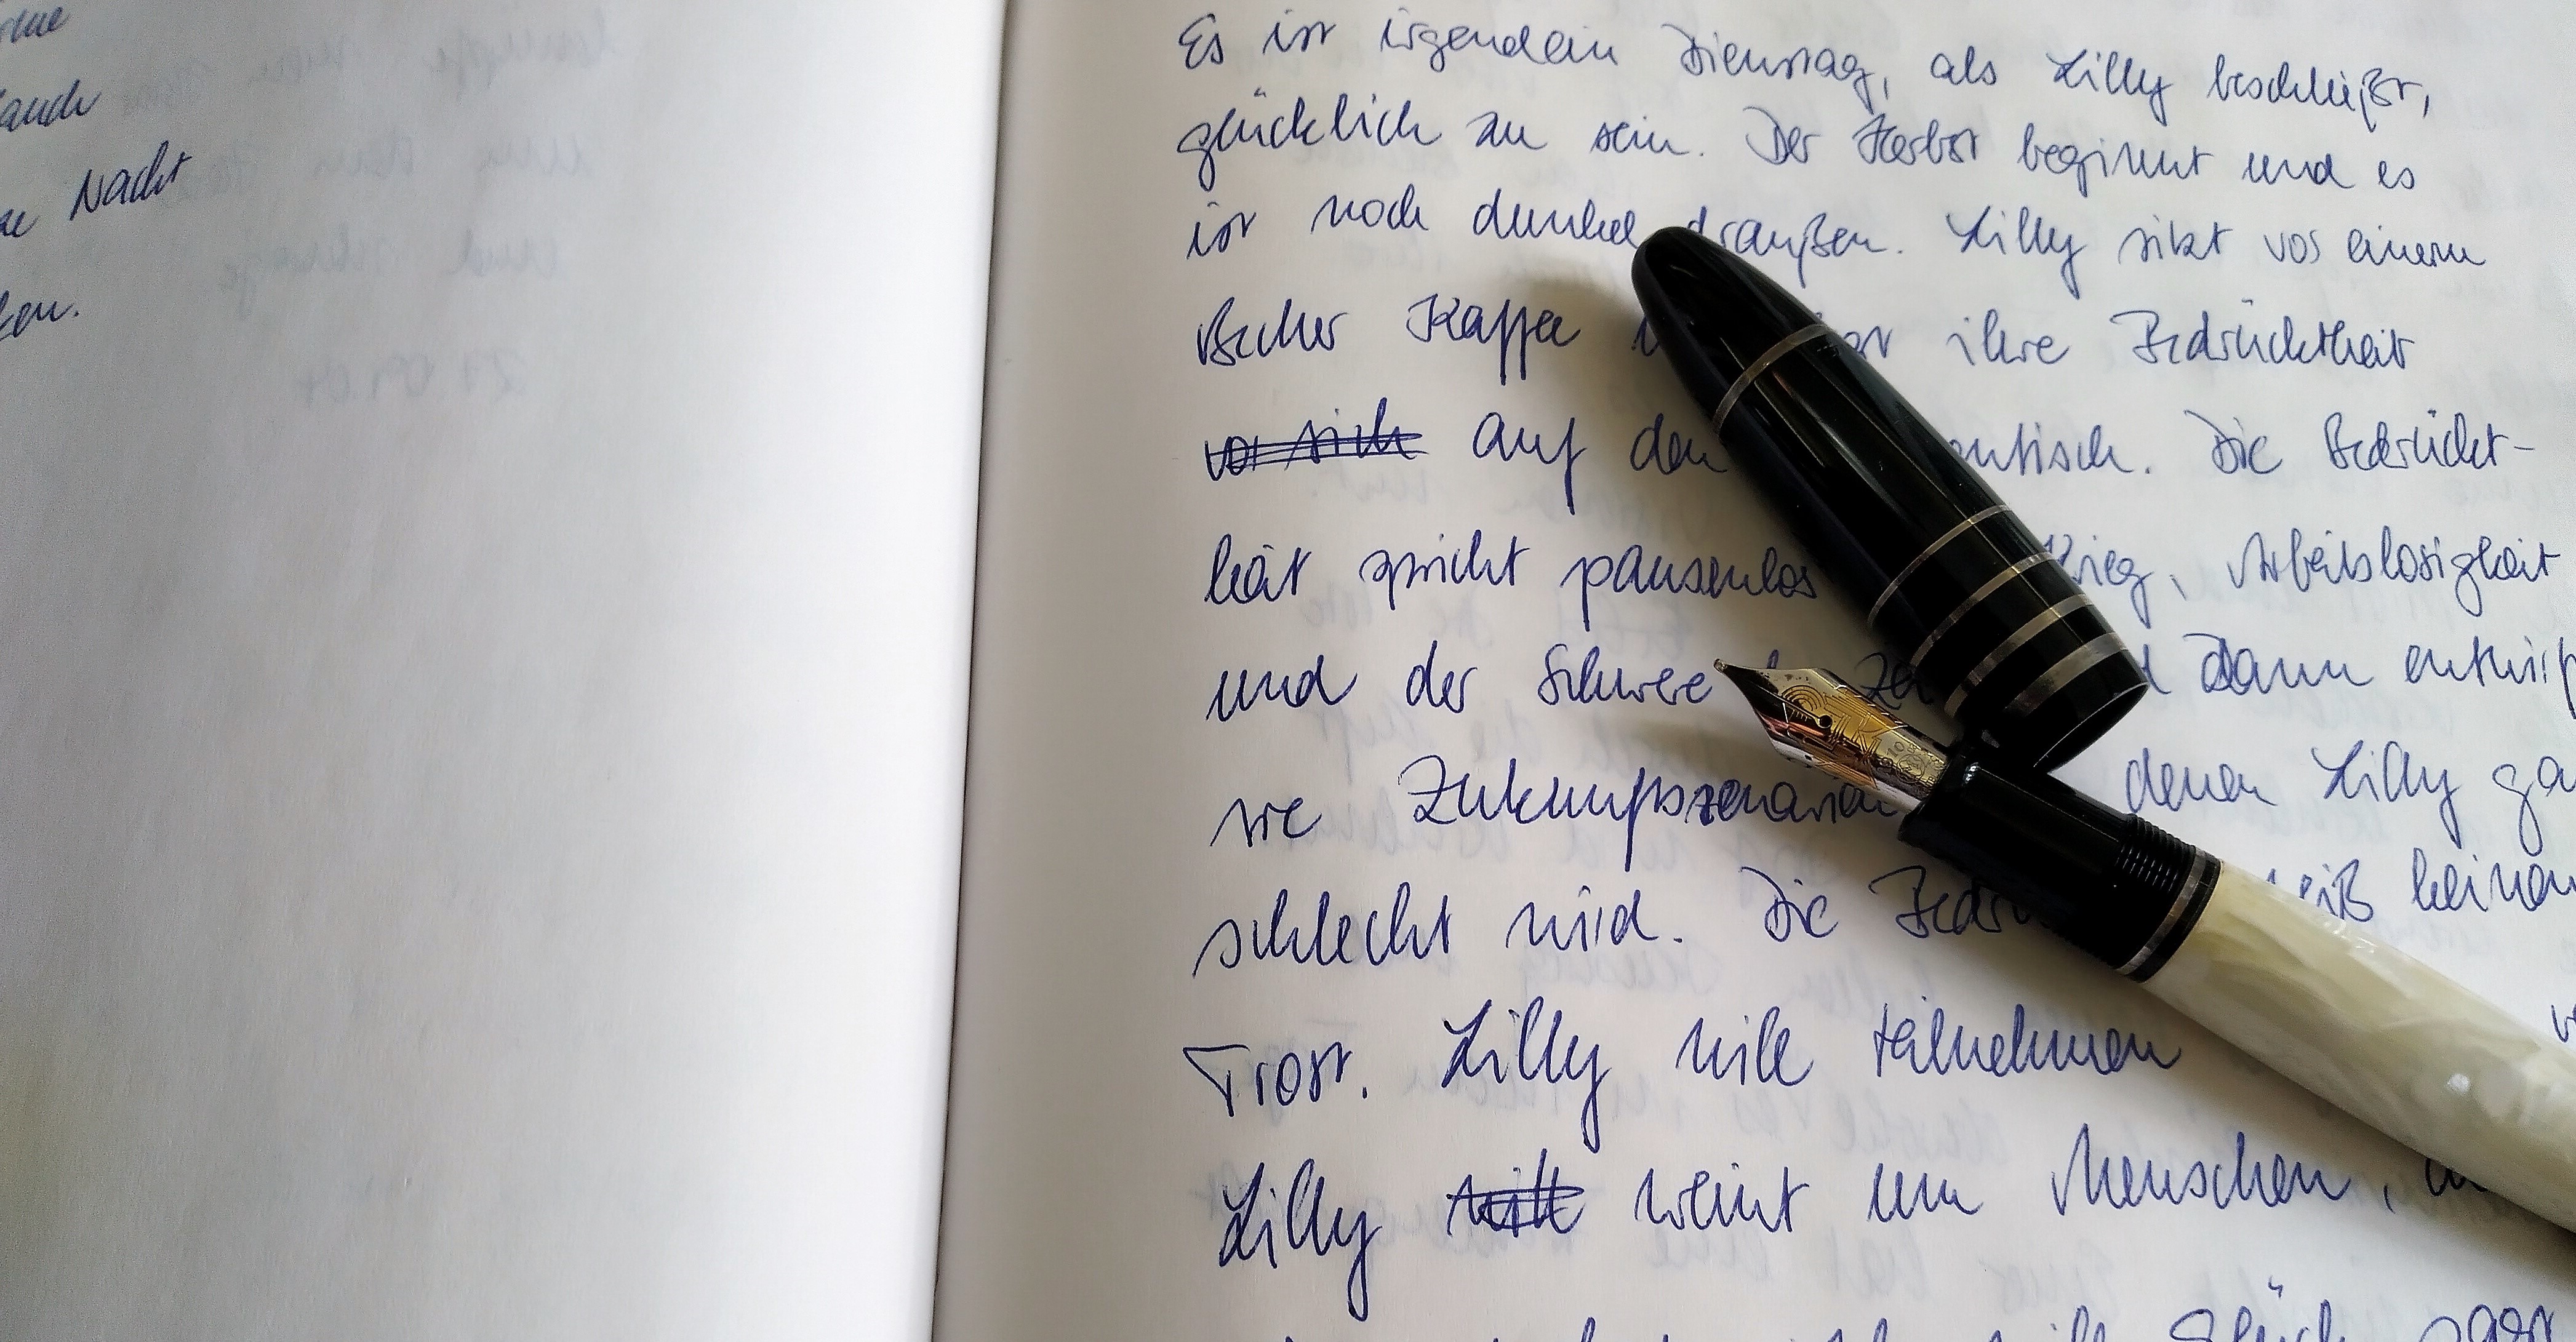 auch
Nacht
ken.
Es ist irgendein Dienstag, als Lilly beschließt,
glücklich zu sein. Der Herbst beginnt und es
ist noch dunkel draußen. Lilly sitzt vor einem
Becher Kaffee ihre Bedrücktheit
vor sich auf den Die Bedrückt-
heit spricht pausenlos Krieg, Arbeitslosigkeit
und der Schwere dann entwirf
sie Zukunftsszenarien denen Lilly ga
schlecht wird. Die weiß keinen
Trost. Lilly will teilnehmen
Lilly will weint um Menschen,
Glück